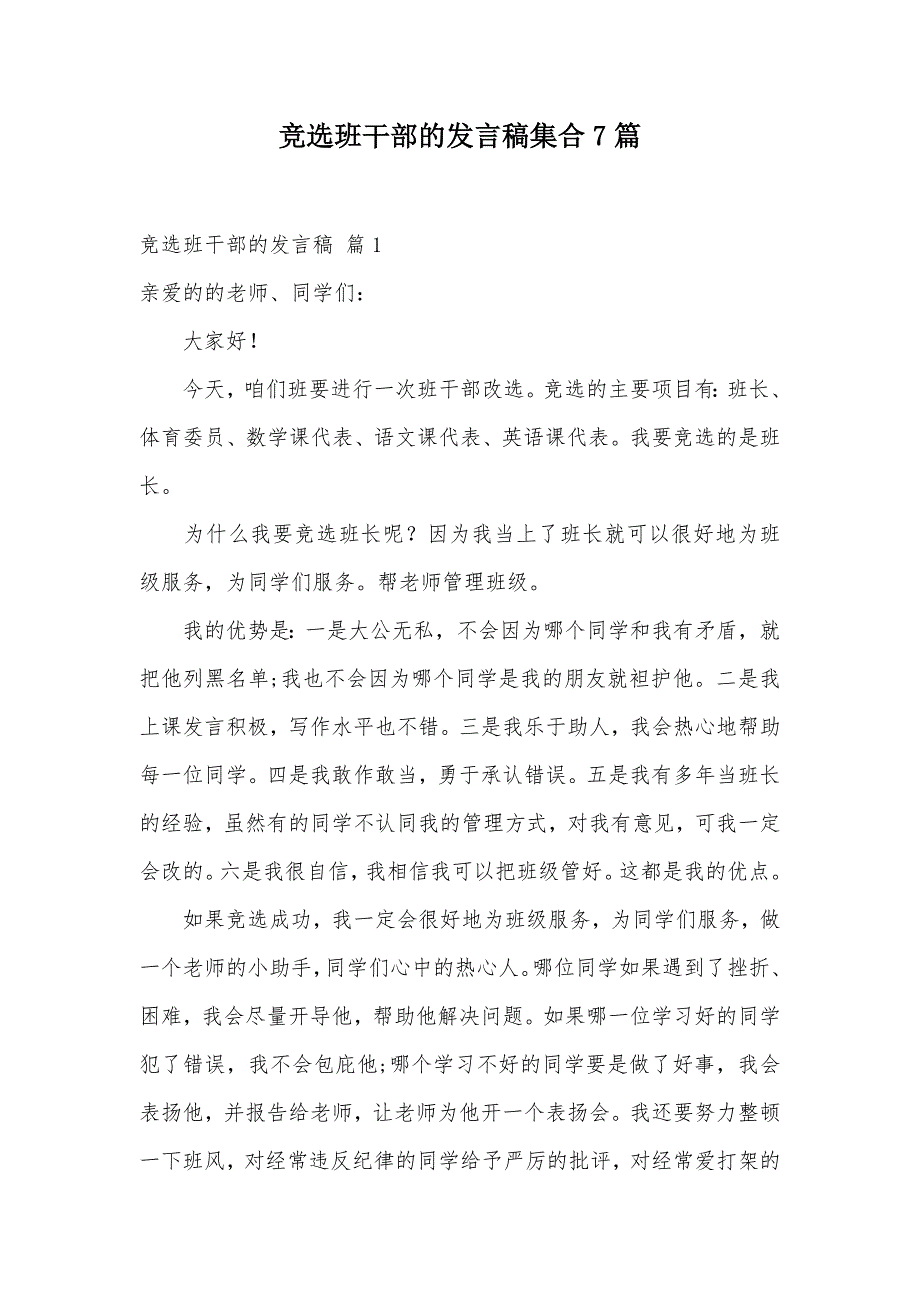 竞选班干部的发言稿集合 7 篇
竞选班干部的发言稿 篇 1
亲爱的的老师、同学们：
大家好！
今天，咱们班要进行一次班干部改选。竞选的主要项目有：班长、
体育委员、数学课代表、语文课代表、英语课代表。我要竞选的是班
长。
为什么我要竞选班长呢？因为我当上了班长就可以很好地为班
级服务，为同学们服务。帮老师管理班级。
我的优势是：一是大公无私，不会因为哪个同学和我有矛盾，就
把他列黑名单;我也不会因为哪个同学是我的朋友就袒护他。二是我
上课发言积极，写作水平也不错。三是我乐于助人，我会热心地帮助
每一位同学。四是我敢作敢当，勇于承认错误。五是我有多年当班长
的经验，虽然有的同学不认同我的管理方式，对我有意见，可我一定
会改的。六是我很自信，我相信我可以把班级管好。这都是我的优点。
如果竞选成功，我一定会很好地为班级服务，为同学们服务，做
一个老师的小助手，同学们心中的热心人。哪位同学如果遇到了挫折、
困难，我会尽量开导他，帮助他解决问题。如果哪一位学习好的同学
犯了错误，我不会包庇他;哪个学习不好的同学要是做了好事，我会
表扬他，并报告给老师，让老师为他开一个表扬会。我还要努力整顿
一下班风，对经常违反纪律的同学给予严厉的批评，对经常爱打架的